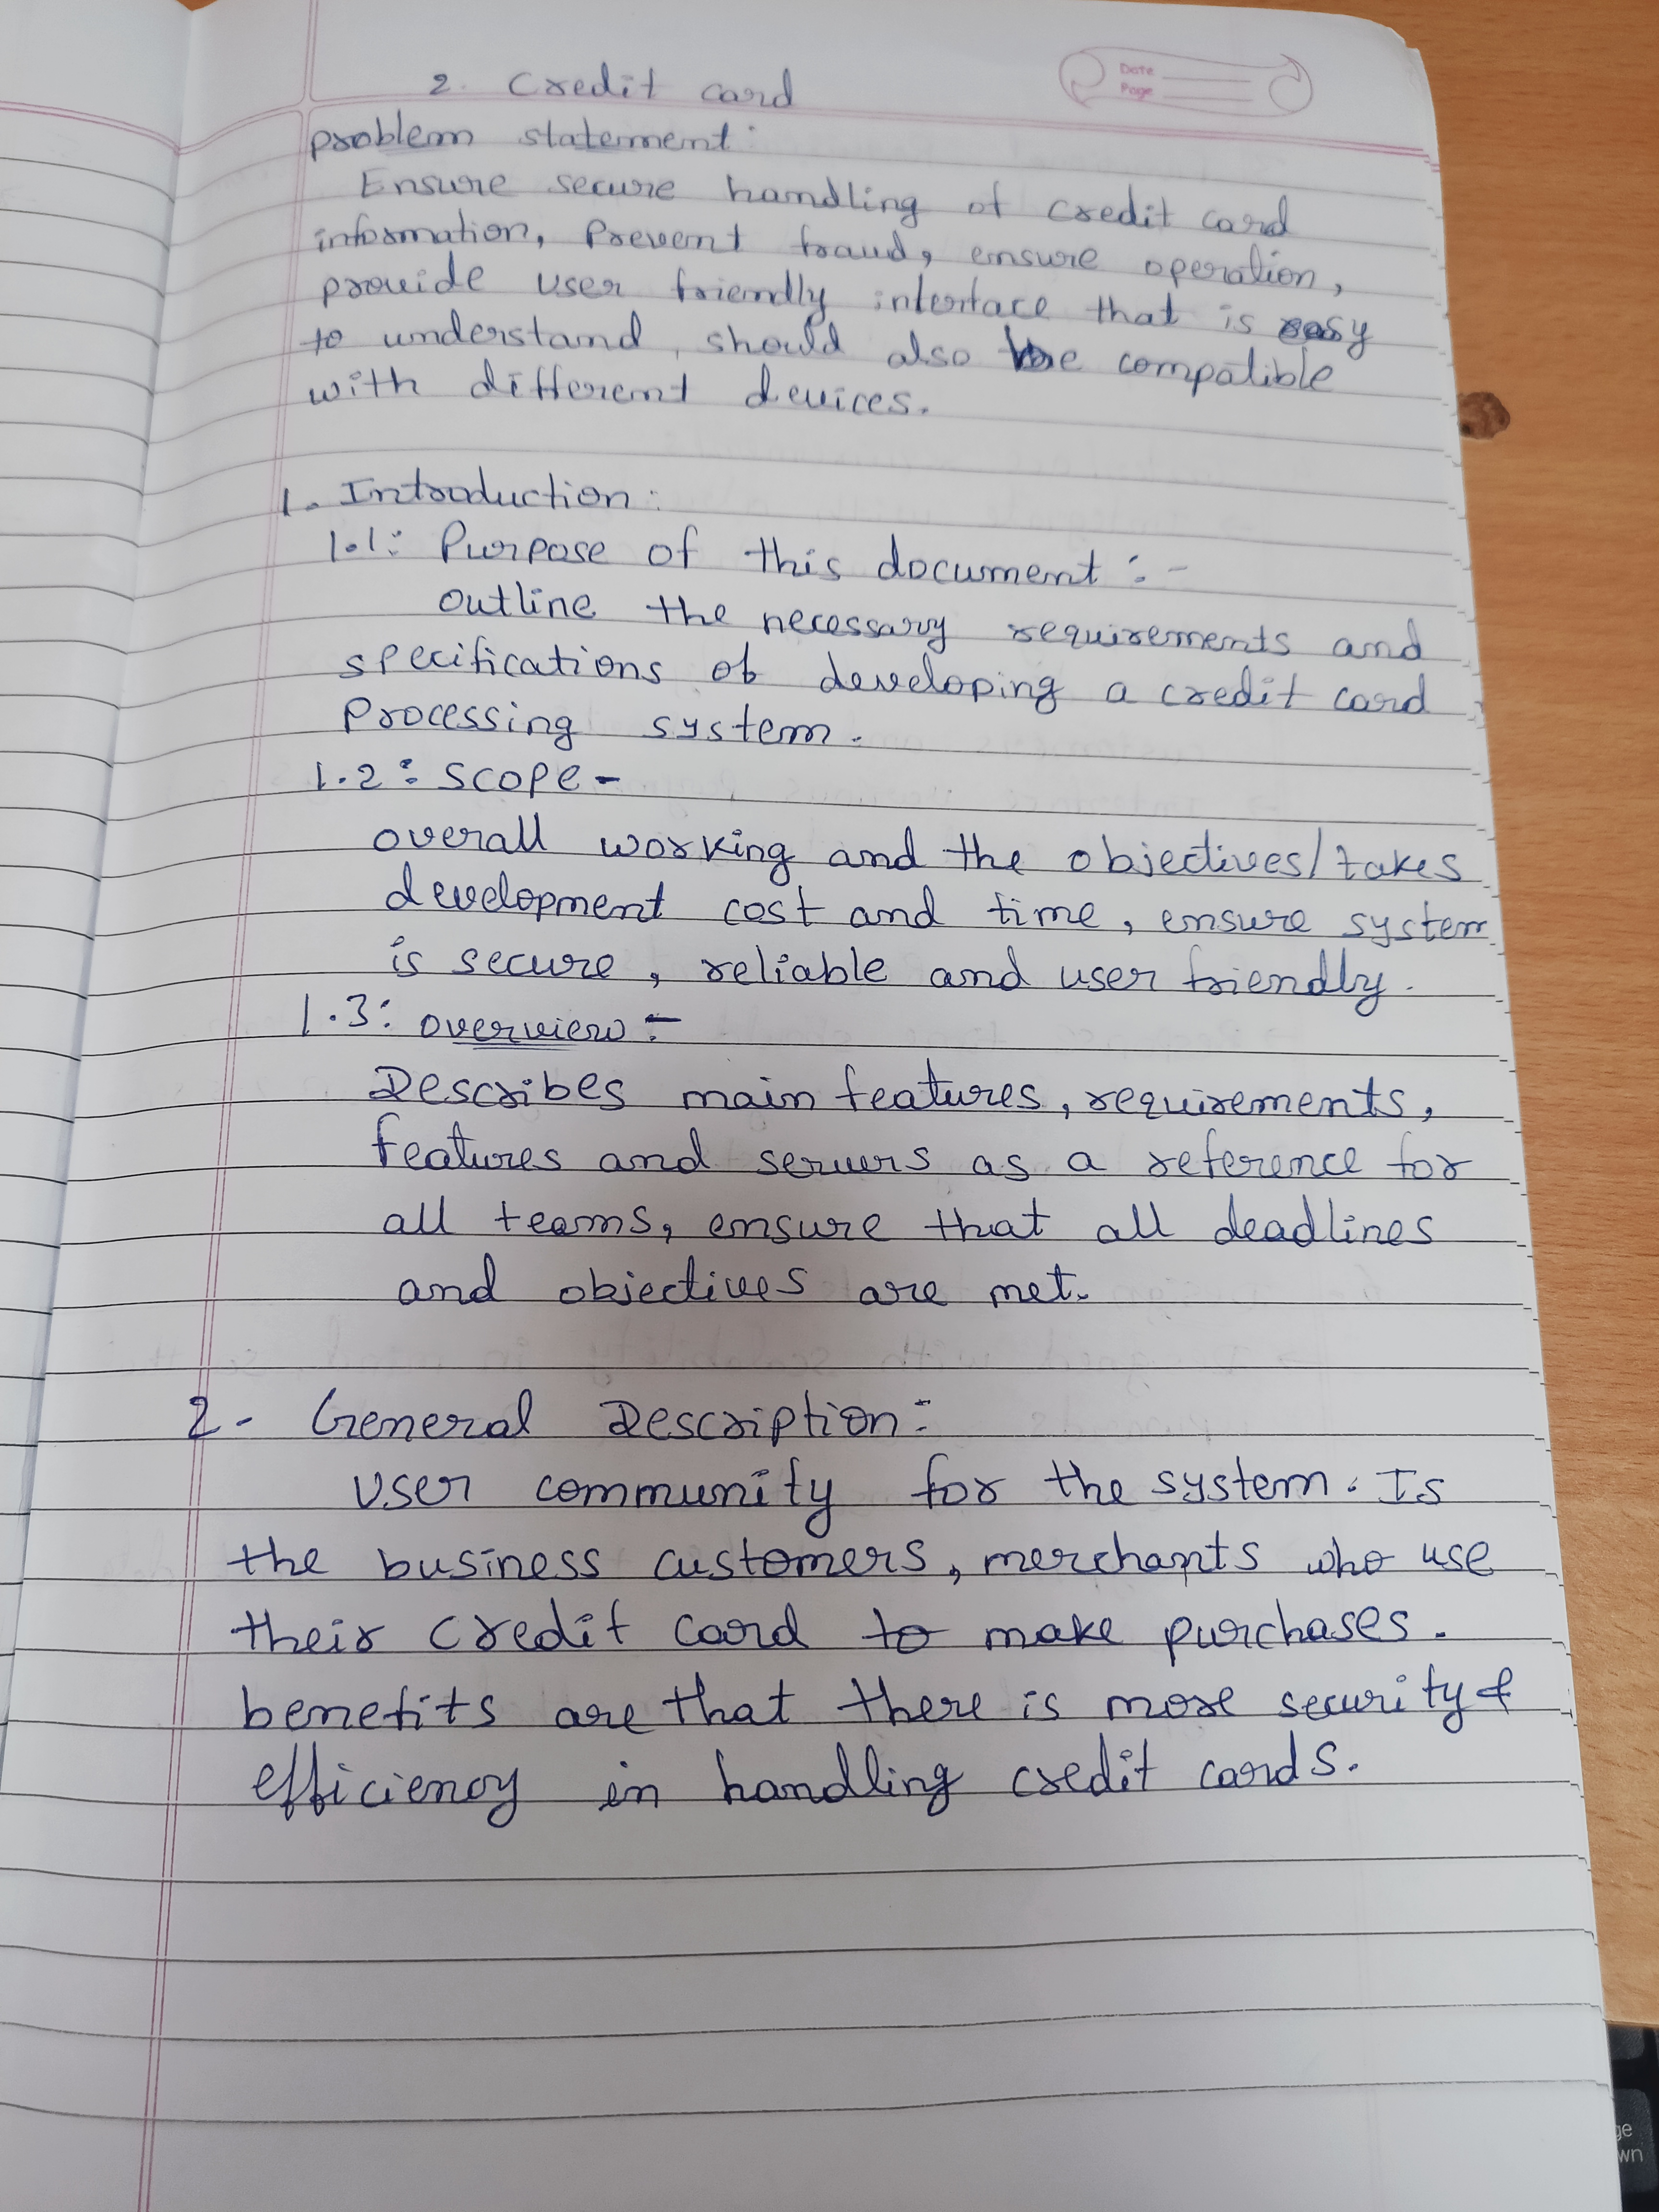 2. Credit card
Date
Page
problem statement:
Ensure secure handling of credit card
information, Prevent fraud, ensure operation,
provide user friendly interface that is easy
to understand, should also be compatible
with different devices.
1. Introduction:
1.1: Purpose of this document :-
outline the necessary requirements and
specifications of developing a credit card
Processing system.
1.2: scope -
overall working and the objectives/takes
development cost and time, ensure system
is secure, reliable and user friendly.
1.3: overview:-
Describes main features, requirements,
features and servers as a reference for
all teams, ensure that all deadlines
and objectives are met.
2- General Description:
User community for the system. Is
the business customers, merchants who use
their credit card to make purchases.
benefits are that there is more security &
efficiency in handling credit cards.